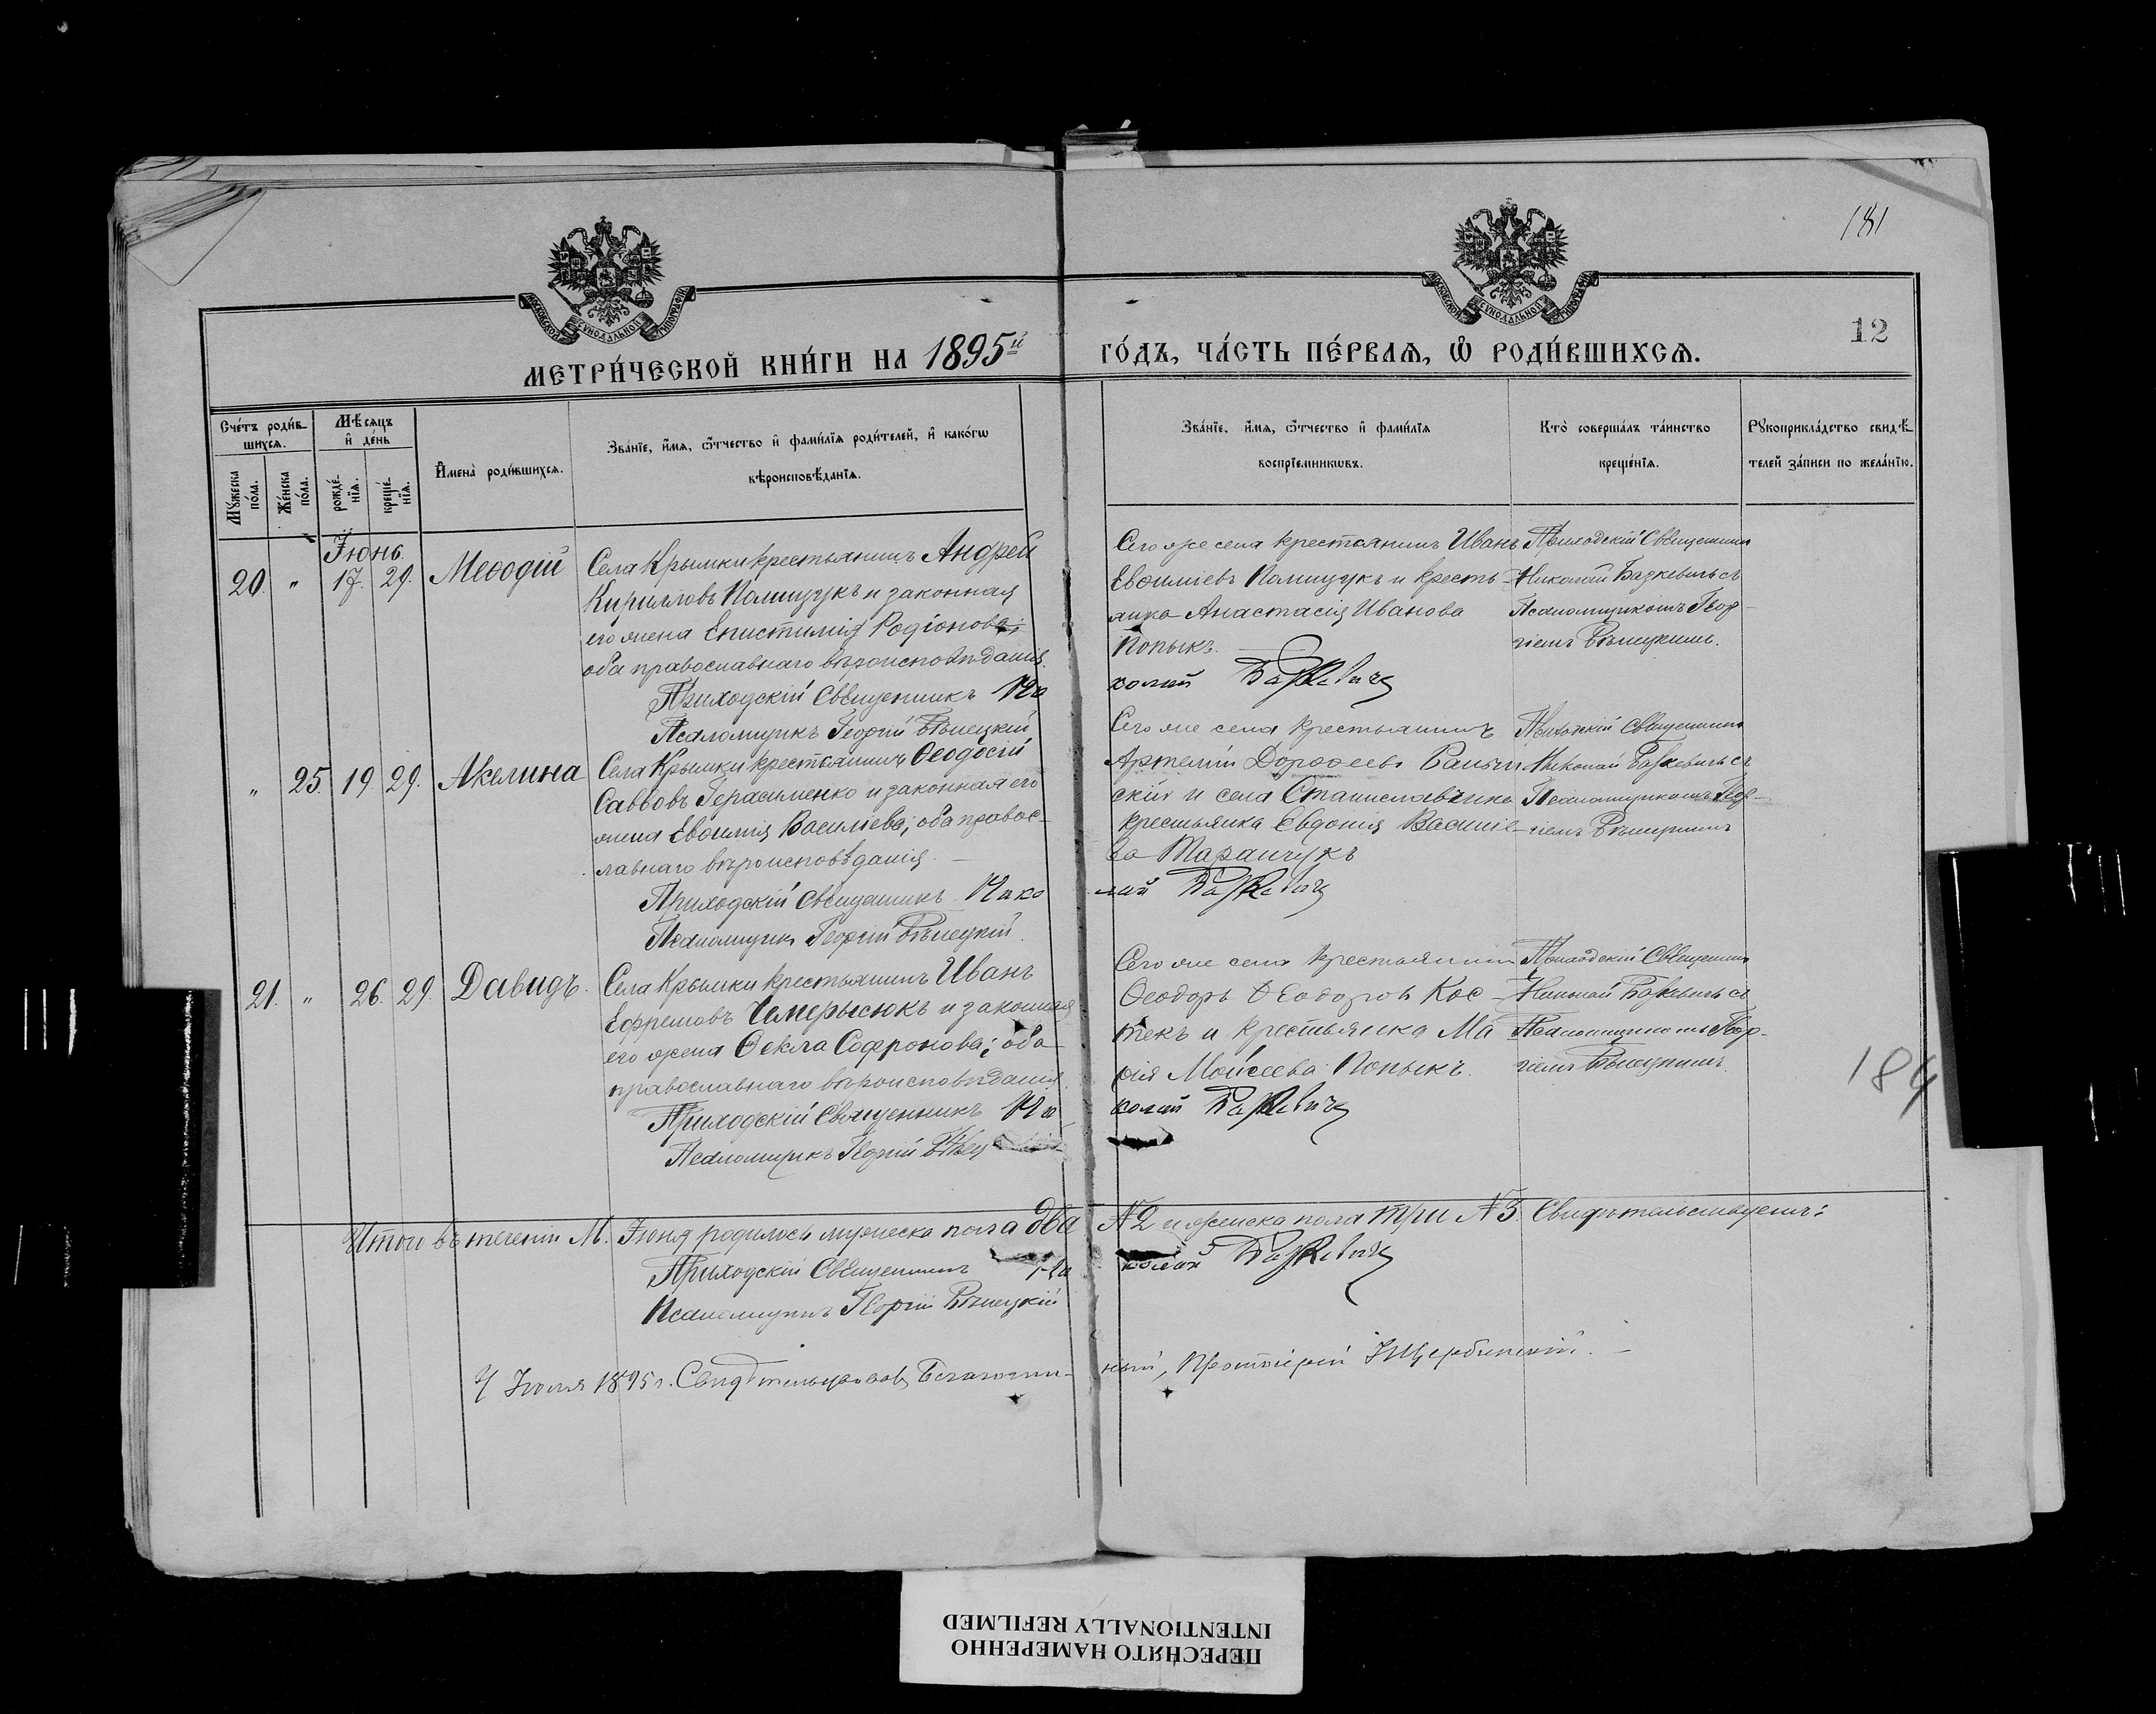 181
12
МОСКОВСКОЙ СУНОДАЛЬНОЙ ТИПОГРАФІИ
МОСКОВСКОЙ СУНОДАЛЬНОЙ ТИПОГРАФІИ
МЕТРИ́ЧЕСКОЙ КНИ́ГИ НА 1895й
ГО́ДЪ, ЧА́СТЬ ПЕ́РВАѦ, Ѡ РОДИ́ВШИХСѦ.
Сче́тъ роди́в-
шихсѧ.
Мѣ́сѧцъ
и҆ де́нь
Мꙋ́жеска
по́ла.
Же́нска
по́ла.
рожде́-
нїѧ.
креще́-
нїѧ.
И҆мена̀ роди́вшихсѧ.
Зва́нїе, и҆́мѧ, ѻ҆́тчество и҆ фами́лїѧ роди́телей, и҆ како́гѡ
вѣроисповѣ́данїѧ.
Зва́нїе, и҆́мѧ, ѻ҆́тчество и҆ фами́лїѧ
воспрїемникѡвъ.
Кто̀ соверша́лъ та́инство
креще́нїѧ.
Рꙋкоприкла́дство свидѣ́-
телей за́писи по жела́нїю.
Іюнь.
20. " 17. 29. Меѳодій
Села Крымки крестьянинъ Андрей
Кирилловъ Полищукъ и законная
его жена Епистимія Родіонова;
оба православнаго вѣроисповѣданія.
Приходскій Священникъ Ни
Псаломщикъ Георгій Вѣнецкій
Сего же села крестьянинъ Иванъ
Евѳиміевъ Полищукъ и кресть-
янка Анастасія Иванова
Попыкъ.
колай Базкевичъ
Приходскій Священникъ
Николай Базкевичъ съ
Псаломщикомъ Геор-
гіемъ Вѣнецкимъ.
" 25. 19. 29. Акелина
Села Крымки крестьянинъ Ѳеодосій
Саввовъ Герасименко и законная его
жена Евѳимія Василіева; оба правос-
лавнаго вѣроисповѣданія.
Приходскій Священникъ Нико
Псаломщикъ Георгій Вѣнецкій.
Сего же села крестьянинъ
Артемій Дороѳеевъ
скій и села Станиславчика
крестьянка Евдокія Василіе-
ва Таранчукъ
лай Базкевичъ
Приходскій Священникъ
Николай Базкевичъ съ
Псаломщикомъ Геор-
гіемъ Вѣнецкимъ
21. " 26. 29. Давидъ.
Села Крымки крестьянинъ Иванъ
Ефремовъ Чемерысюкъ и законная
его жена Ѳекла Софронова; оба
православнаго вѣроисповѣданія.
Приходскій Священникъ Ни
Псаломщикъ Георгій Вѣнец
Сего же села крестьянинъ
Ѳеодоръ Ѳеодоровъ Кос-
текъ и крестьянка Ма
рія Моисеева Попыкъ.
колай Базкевичъ
Приходскій Священникъ
Николай Базкевичъ съ
Псаломщикомъ Геор-
гіемъ Вѣнецкимъ.
184
Итого въ теченіи М. Іюня родилось мужеска пола два №2 и женска пола три №3. Свидѣтельствуемъ:
Приходскій Священникъ Николай Базкевичъ
Псаломщикъ Георгій Вѣнецкій
4 Іюля 1895 г. Свидѣтельствовалъ Благочин-
ный, Протоіерей Щербинскій.
ПЕРЕСНЯТО НАМЕРЕННО
INTENTIONALLY REFILMED